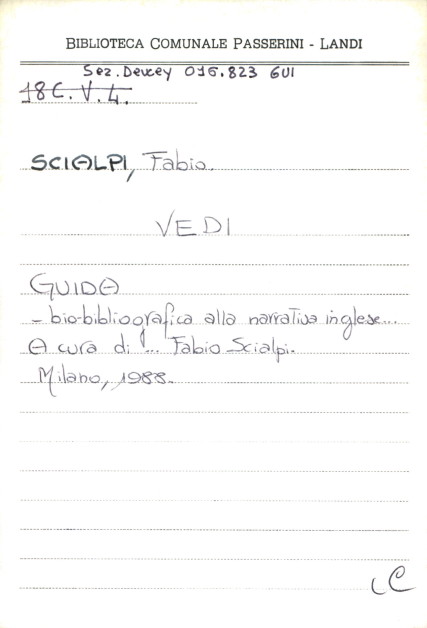 BIBLIOTECA COMUNALE PASSERINI - LANDI
Sez. Dewey 016.823 GUI
18C.V.4.
SCIALPI, Fabio.
VEDI
GUIDA
- bio-bibliografica alla narrativa inglese...
A cura di ... Fabio Scialpi.
Milano, 1988.